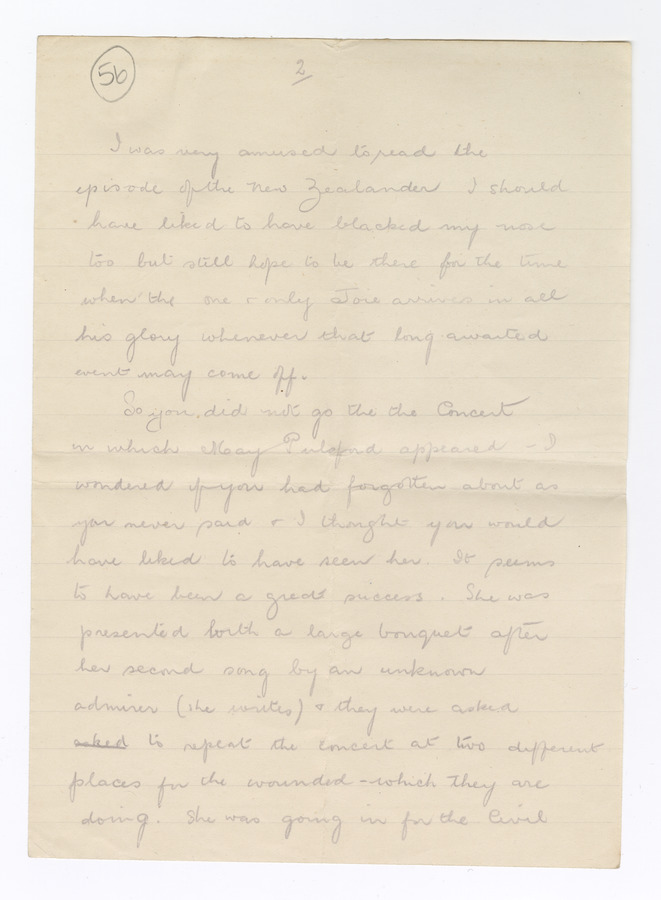 56
2
I was very amused to read the
episode of the New Zealander I should
have liked to have blacked my nose
too but still hope to be there for the time
when the one & only arrives in all
his glory whenever that long awaited
event may come off.
So you did not go the the Concert
in which May appeared - I
wondered if you had forgotten about as
you never said & I thought you would
have liked to have seen her. It seems
to have been a great success. She was
presented with a large bouquet after
her second song by an unknown
admirer (she writes) & they were asked
asked to repeat the concert at two different
places for the wounded - which they are
doing. She was going in for the Civil